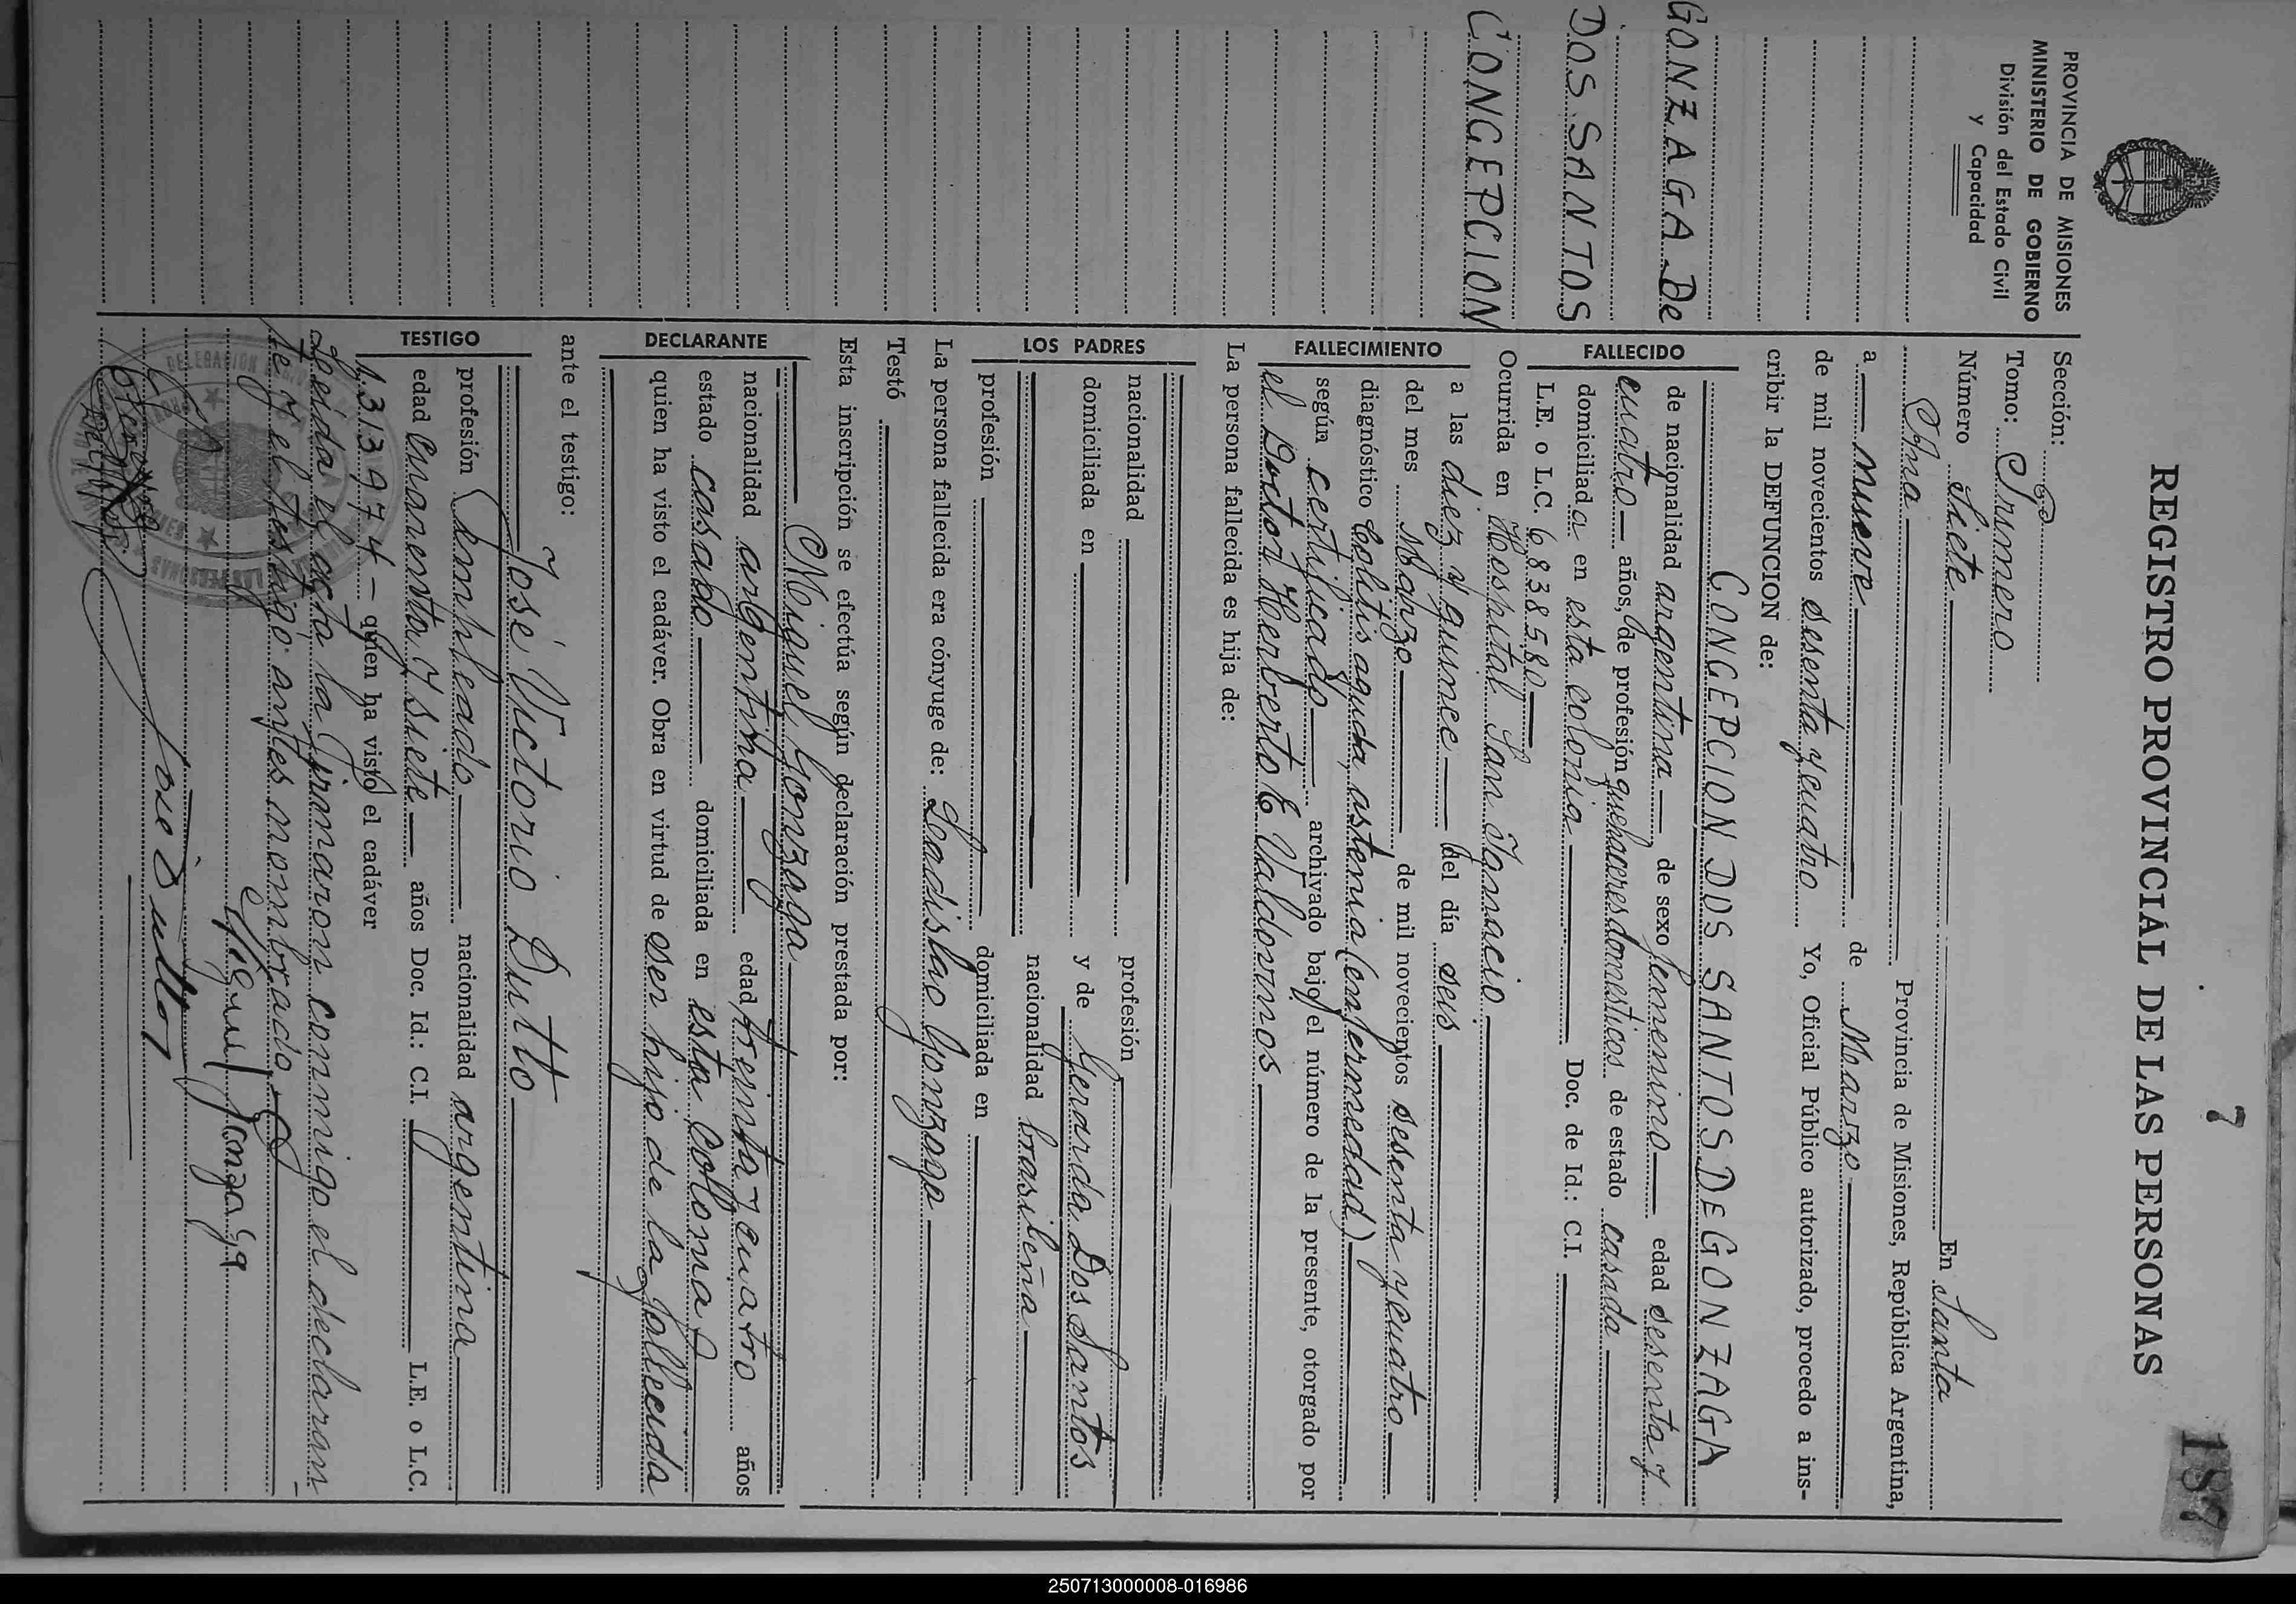 7
187
REGISTRO PROVINCIAL DE LAS PERSONAS
PROVINCIA DE MISIONES
MINISTERIO DE GOBIERNO
División del Estado Civil
y Capacidad
GONZAGA De
DOS SANTOS
CONCEPCION
Sección:
Tomo: Primero
Número Siete En Santa
Ana Provincia de Misiones, República Argentina,
a nueve de Marzo
de mil novecientos sesenta y cuatro Yo, Oficial Público autorizado, procedo a ins-
cribir la DEFUNCION de:
FALLECIDO
CONCEPCION DOS SANTOS DE GONZAGA
de nacionalidad argentina de sexo femenino edad sesenta y
cuatro años, de profesión quehaceres domesticos de estado casada
domiciliada en esta colonia Doc. de Id.: C.I.
L.E. o L.C. 6838580
FALLECIMIENTO
Ocurrida en Hospital San Ignacio
a las diez y quince del día seis
del mes Marzo de mil novecientos sesenta y cuatro
diagnóstico Colitis aguda, astenia (enfermedad)
según certificado archivado bajo el número de la presente, otorgado por
el Doctor Herberto E Valdovinos
La persona fallecida es hija de:
LOS PADRES
nacionalidad profesión
domiciliada en y de Gerarda Dos Santos
nacionalidad brasileña
profesión domiciliada en
La persona fallecida era cónyuge de: Leadislao Gonzaga
Testó
Esta inscripción se efectúa según declaración prestada por:
DECLARANTE
Miguel Gonzaga
nacionalidad argentina edad treinta y cuatro años
estado casado domiciliada en esta Colonia
quien ha visto el cadáver. Obra en virtud de ser hijo de la fallecida
ante el testigo:
TESTIGO
José Victorio Dutto
profesión Empleado nacionalidad argentina
edad Cuarenta y siete años Doc. Id.: C.I. L.E. o L.C.
1.313.974 – quien ha visto el cadáver
Leida el acta la firmaron conmigo el declaran
te y el testigo antes nombrado
Miguel Gonzaga
José Dutto
250713000008-016986